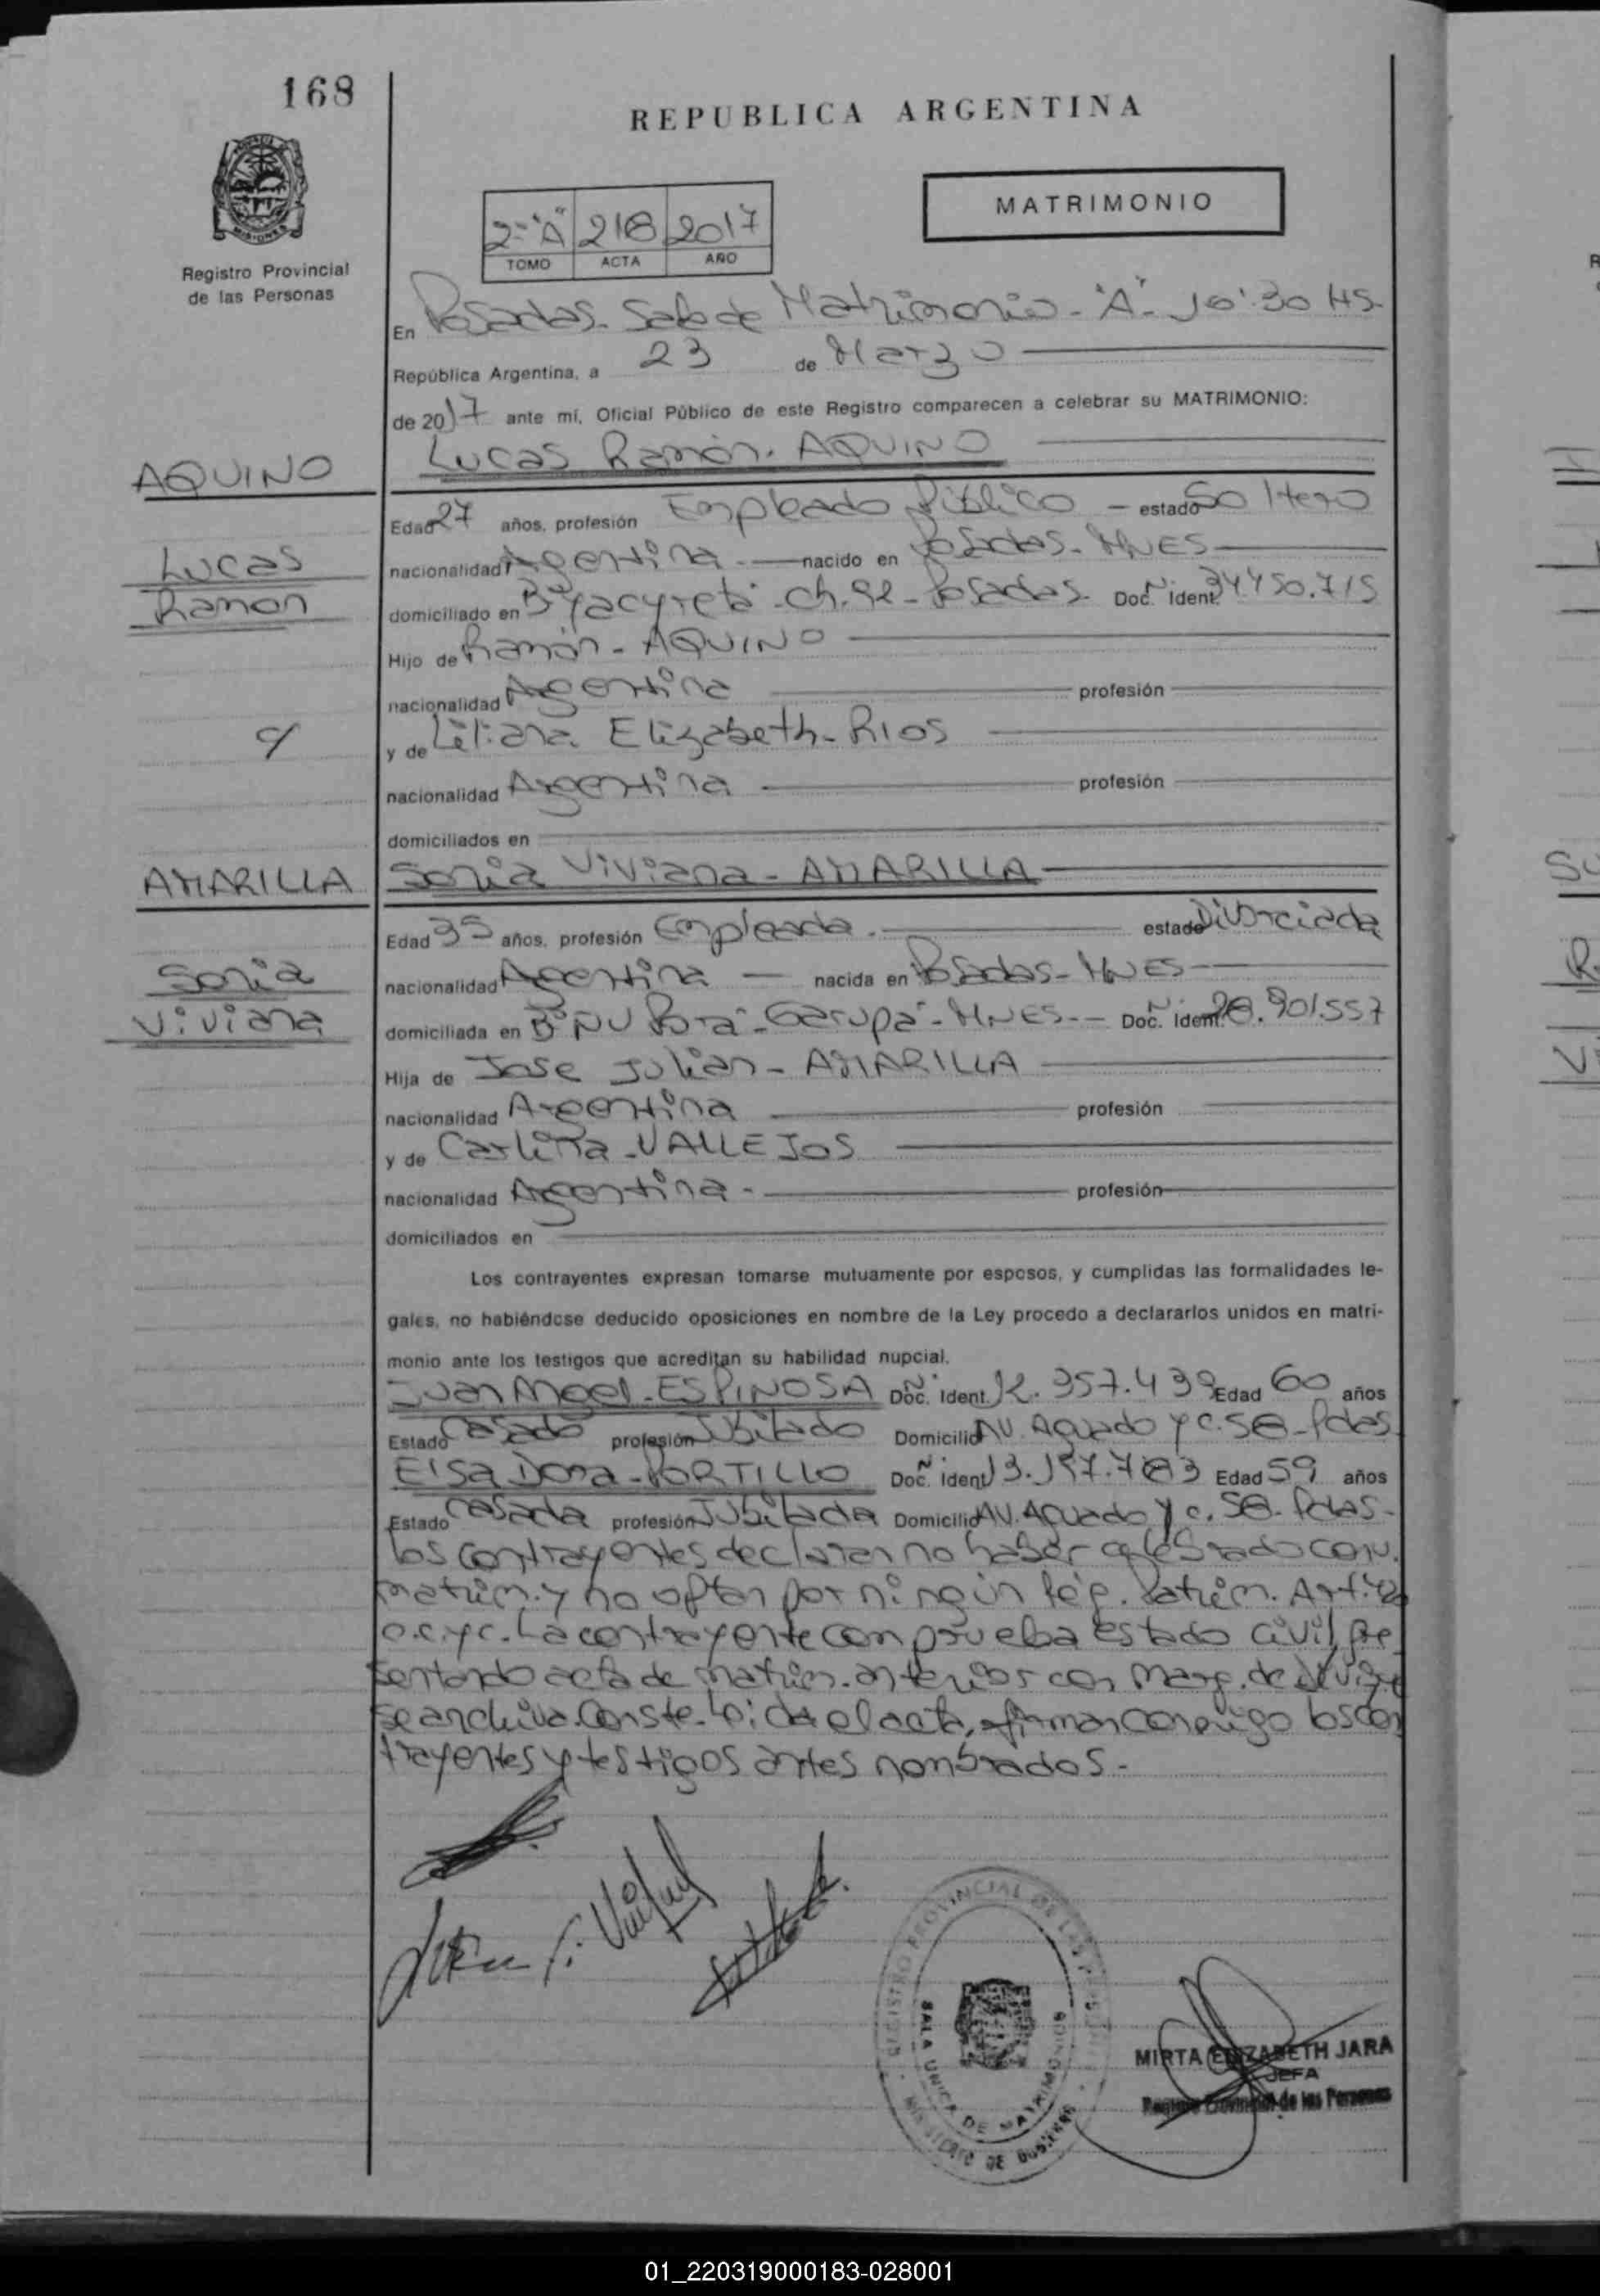 168
REPUBLICA ARGENTINA
MATRIMONIO
2- "A" 218 2017
TOMO ACTA AÑO
MISIONES
Registro Provincial
de las Personas
En Posadas. Sala de Matrimonio - "A" - 10:30 HS.
República Argentina, a 23 de Marzo
de 2017 ante mí, Oficial Público de este Registro comparecen a celebrar su MATRIMONIO:
Lucas Ramón. AQUINO
AQUINO
Lucas
Ramon
Edad 27 años, profesión Empleado Público - estado Soltero
nacionalidad Argentina - nacido en Posadas - MNES
domiciliado en Bº Yacyreta - Ch. - Posadas - Doc. Nº Ident. 34.450.715
Hijo de Ramón - AQUINO
nacionalidad Argentina profesión
c/
y de Liliana Elizabeth - RIOS
nacionalidad Argentina profesión
domiciliados en
AMARILLA
Sonia Viviana - AMARILLA
Sonia
Viviana
Edad 35 años, profesión Empleada. estado Divorciada
nacionalidad Argentina - nacida en Posadas - MNES
domiciliada en Bº Ñu Porá - Garupá - MNES - Doc. Nº Ident. 28.901.557
Hija de Jose Julian - AMARILLA
nacionalidad Argentina profesión
y de Carlina - VALLEJOS
nacionalidad Argentina - profesión
domiciliados en
Los contrayentes expresan tomarse mutuamente por esposos, y cumplidas las formalidades le-
gales, no habiéndose deducido oposiciones en nombre de la Ley procedo a declararlos unidos en matri-
monio ante los testigos que acreditan su habilidad nupcial.
Juan - ESPINOSA Doc. Nº Ident. 12.357.439 Edad 60 años
Estado Casado profesión Jubilado Domicilio AV. Aguado y c. 58 - Pdas.
Elsa Dora - PORTILLO Doc. Nº Ident. 13.197.783 Edad 59 años
Estado Casada profesión Jubilada Domicilio AV. Aguado y c. 58 - Pdas -
los contrayentes declaran no haber celebrado conv.
matrim. y no optan por ningún Rég. Patrim. Art.
c.c.yc. La contrayente comprueba estado civil, pre
sentando acta de matrim. anterior con marg. de
se archiva. Conste. Leida el acta, firman conmigo los con
trayentes y testigos antes nombrados. -
REGISTRO PROVINCIAL DE LAS PERSONAS
SALA UNICA DE MATRIMONIOS
MINISTERIO DE GOBIERNO
MIRTA ELIZABETH JARA
JEFA
Registro Provincial de las Personas
01_220319000183-028001